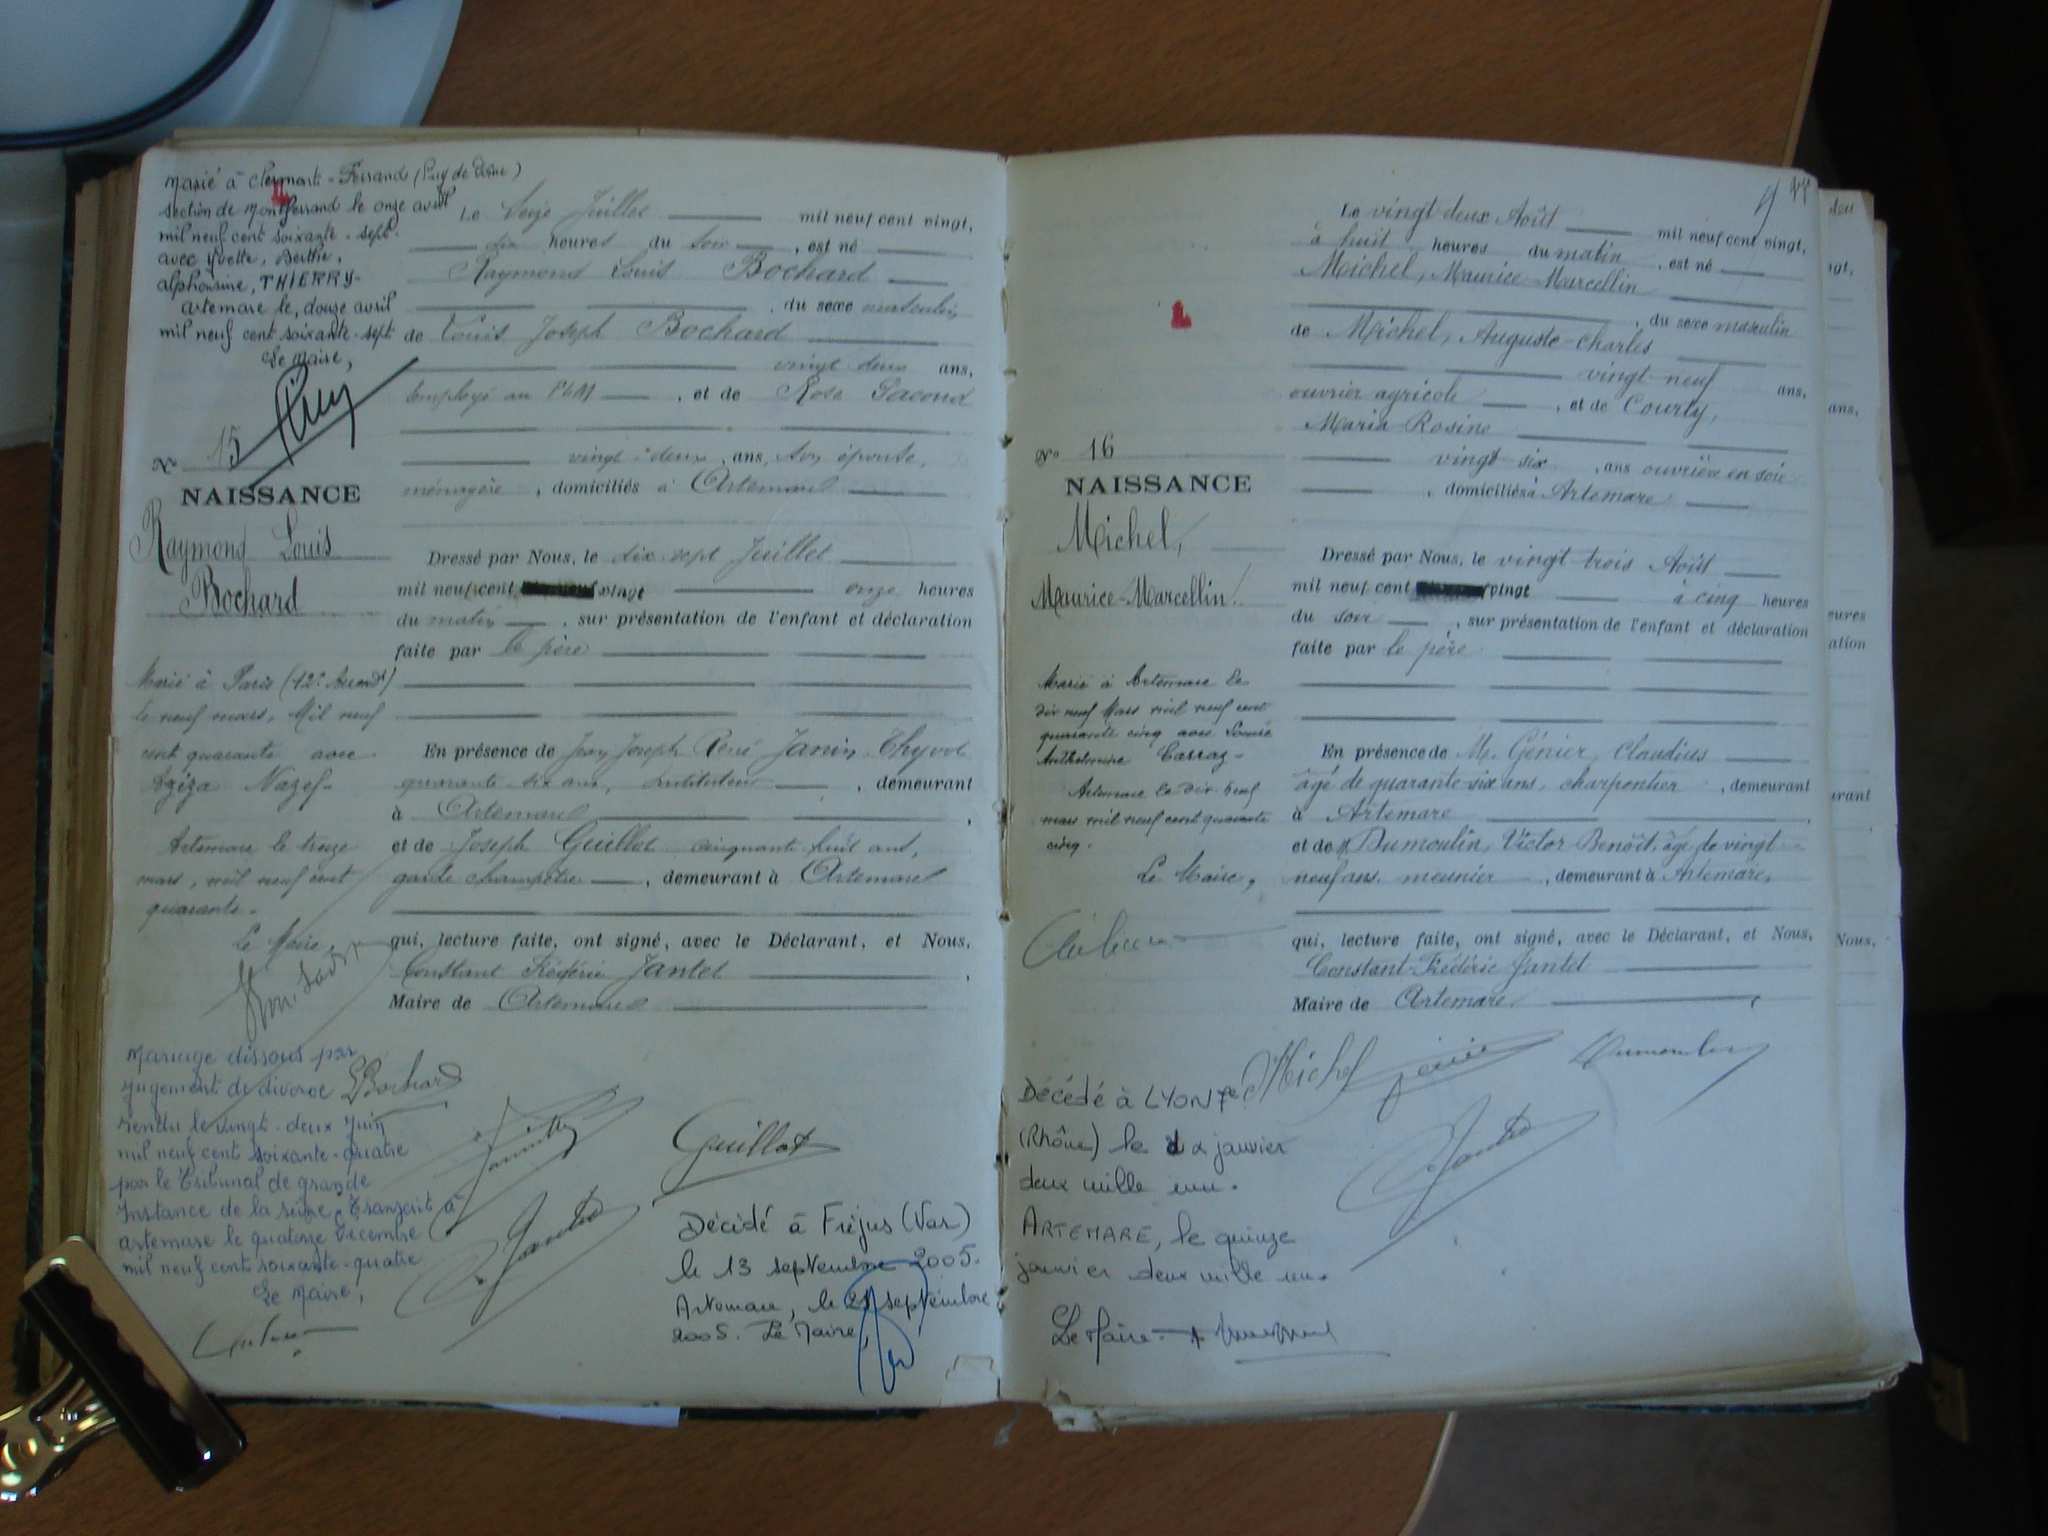 Marié à Clermont-Ferrand (Puy de Dôme)
section de Montferrand le onze avril
mil neuf cent soixante-sept
avec Yvette, Berthe,
Alphonsine, THIERRY-
Artemare le, douze avril
mil neuf cent soixante-sept
Le Maire,
N° 15
NAISSANCE
Raymond Louis
Bochard
Marié à Paris (12e Arrondt)
le neuf mars, mil neuf
cent quarante avec
Aziza Nazef-
Artemare le treize
mars, mil neuf cent
quarante-
Le Maire,
Mariage dissous par
jugement de divorce
rendu le vingt-deux Juin
mil neuf cent soixante-quatre
par le Tribunal de grande
Instance de la Seine. Transcrit à
Artemare le quatorze Décembre
mil neuf cent soixante-quatre
Le Maire,
Le seize Juillet mil neuf cent vingt,
dix heures du soir, est né
Raymond Louis Bochard
, du sexe masculin
de Louis Joseph Bochard
vingt deux ans,
employé au PLM, et de Rose Sacond
vingt-deux, ans, son épouse,
ménagère, domiciliés à Artemare
Dressé par Nous, le dix-sept Juillet
mil neuf cent vingt onze heures
du matin, sur présentation de l'enfant et déclaration
faite par le père
En présence de Jean Joseph René Janin-Thyvot
quarante six ans, instituteur, demeurant
à Artemare,
et de Joseph Guillot cinquante huit ans,
garde champêtre, demeurant à Artemare
qui, lecture faite, ont signé, avec le Déclarant, et Nous,
Constant Frédéric Jantet,
Maire de Artemare
LBochard
Guillot
Jantet
Décédé à Fréjus (Var)
le 13 septembre 2005.
Artemare, le 21 septembre
2005. Le Maire,
N° 16
NAISSANCE
Michel,
Maurice-Marcellin.
Marié à Artemare le
dix neuf Mars mil neuf cent
quarante cinq avec Louise
Anthelmine Carraz-
Artemare le dix-neuf
mars mil neuf cent quarante
cinq.
Le Maire,
Le vingt deux Août mil neuf cent vingt,
à huit heures du matin, est né
Michel, Maurice-Marcellin
, du sexe masculin
de Michel, Auguste-Charles
vingt-neuf ans,
ouvrier agricole, et de Courty,
Maria-Rosine
vingt six, ans ouvrière en soie
, domiciliés à Artemare
Dressé par Nous, le vingt trois Août
mil neuf cent vingt à cinq heures
du soir, sur présentation de l'enfant et déclaration
faite par le père
En présence de M. Génier, Claudius
âgé de quarante-six ans, charpentier, demeurant
à Artemare,
et de M. Dumoulin, Victor Benoît, âgé de vingt
neuf ans. meunier, demeurant à Artemare,
qui, lecture faite, ont signé, avec le Déclarant, et Nous,
Constant-Frédéric Jantet
Maire de Artemare,
Michel Génier Dumoulin
Jantet
Décédé à LYON 7e
(Rhône) le dix janvier
deux mille un.
ARTEMARE, le quinze
janvier deux mille un.
Le Maire
eures
ation
urant
Nous,